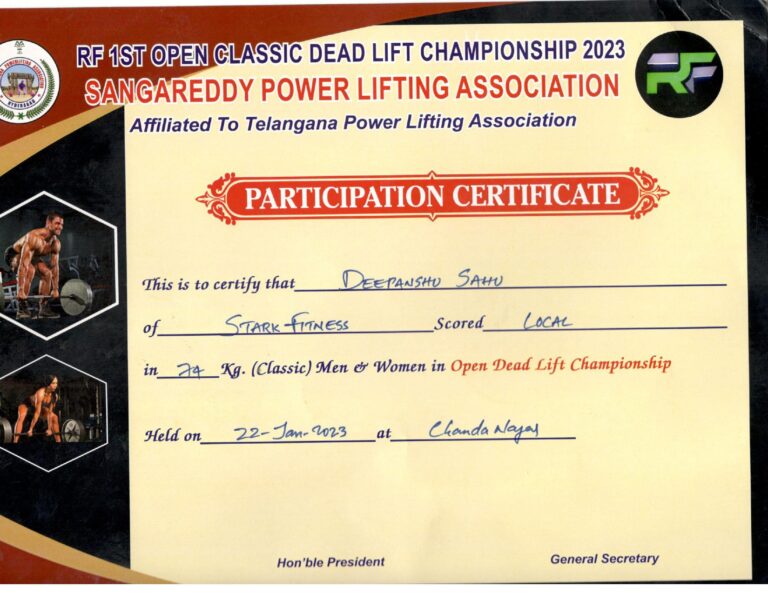 RF 1ST OPEN CLASSIC DEAD LIFT CHAMPIONSHIP 2023
SANGAREDDY POWER LIFTING ASSOCIATION
Affiliated To Telangana Power Lifting Association
RF
PARTICIPATION CERTIFICATE
This is to certify that DEEPANSHU SAHU
of STARK FITNESS Scored LOCAL
in 74 Kg. (Classic) Men & Women in Open Dead Lift Championship
Held on 22-Jan-2023 at Chanda Nagar
Hon'ble President General Secretary